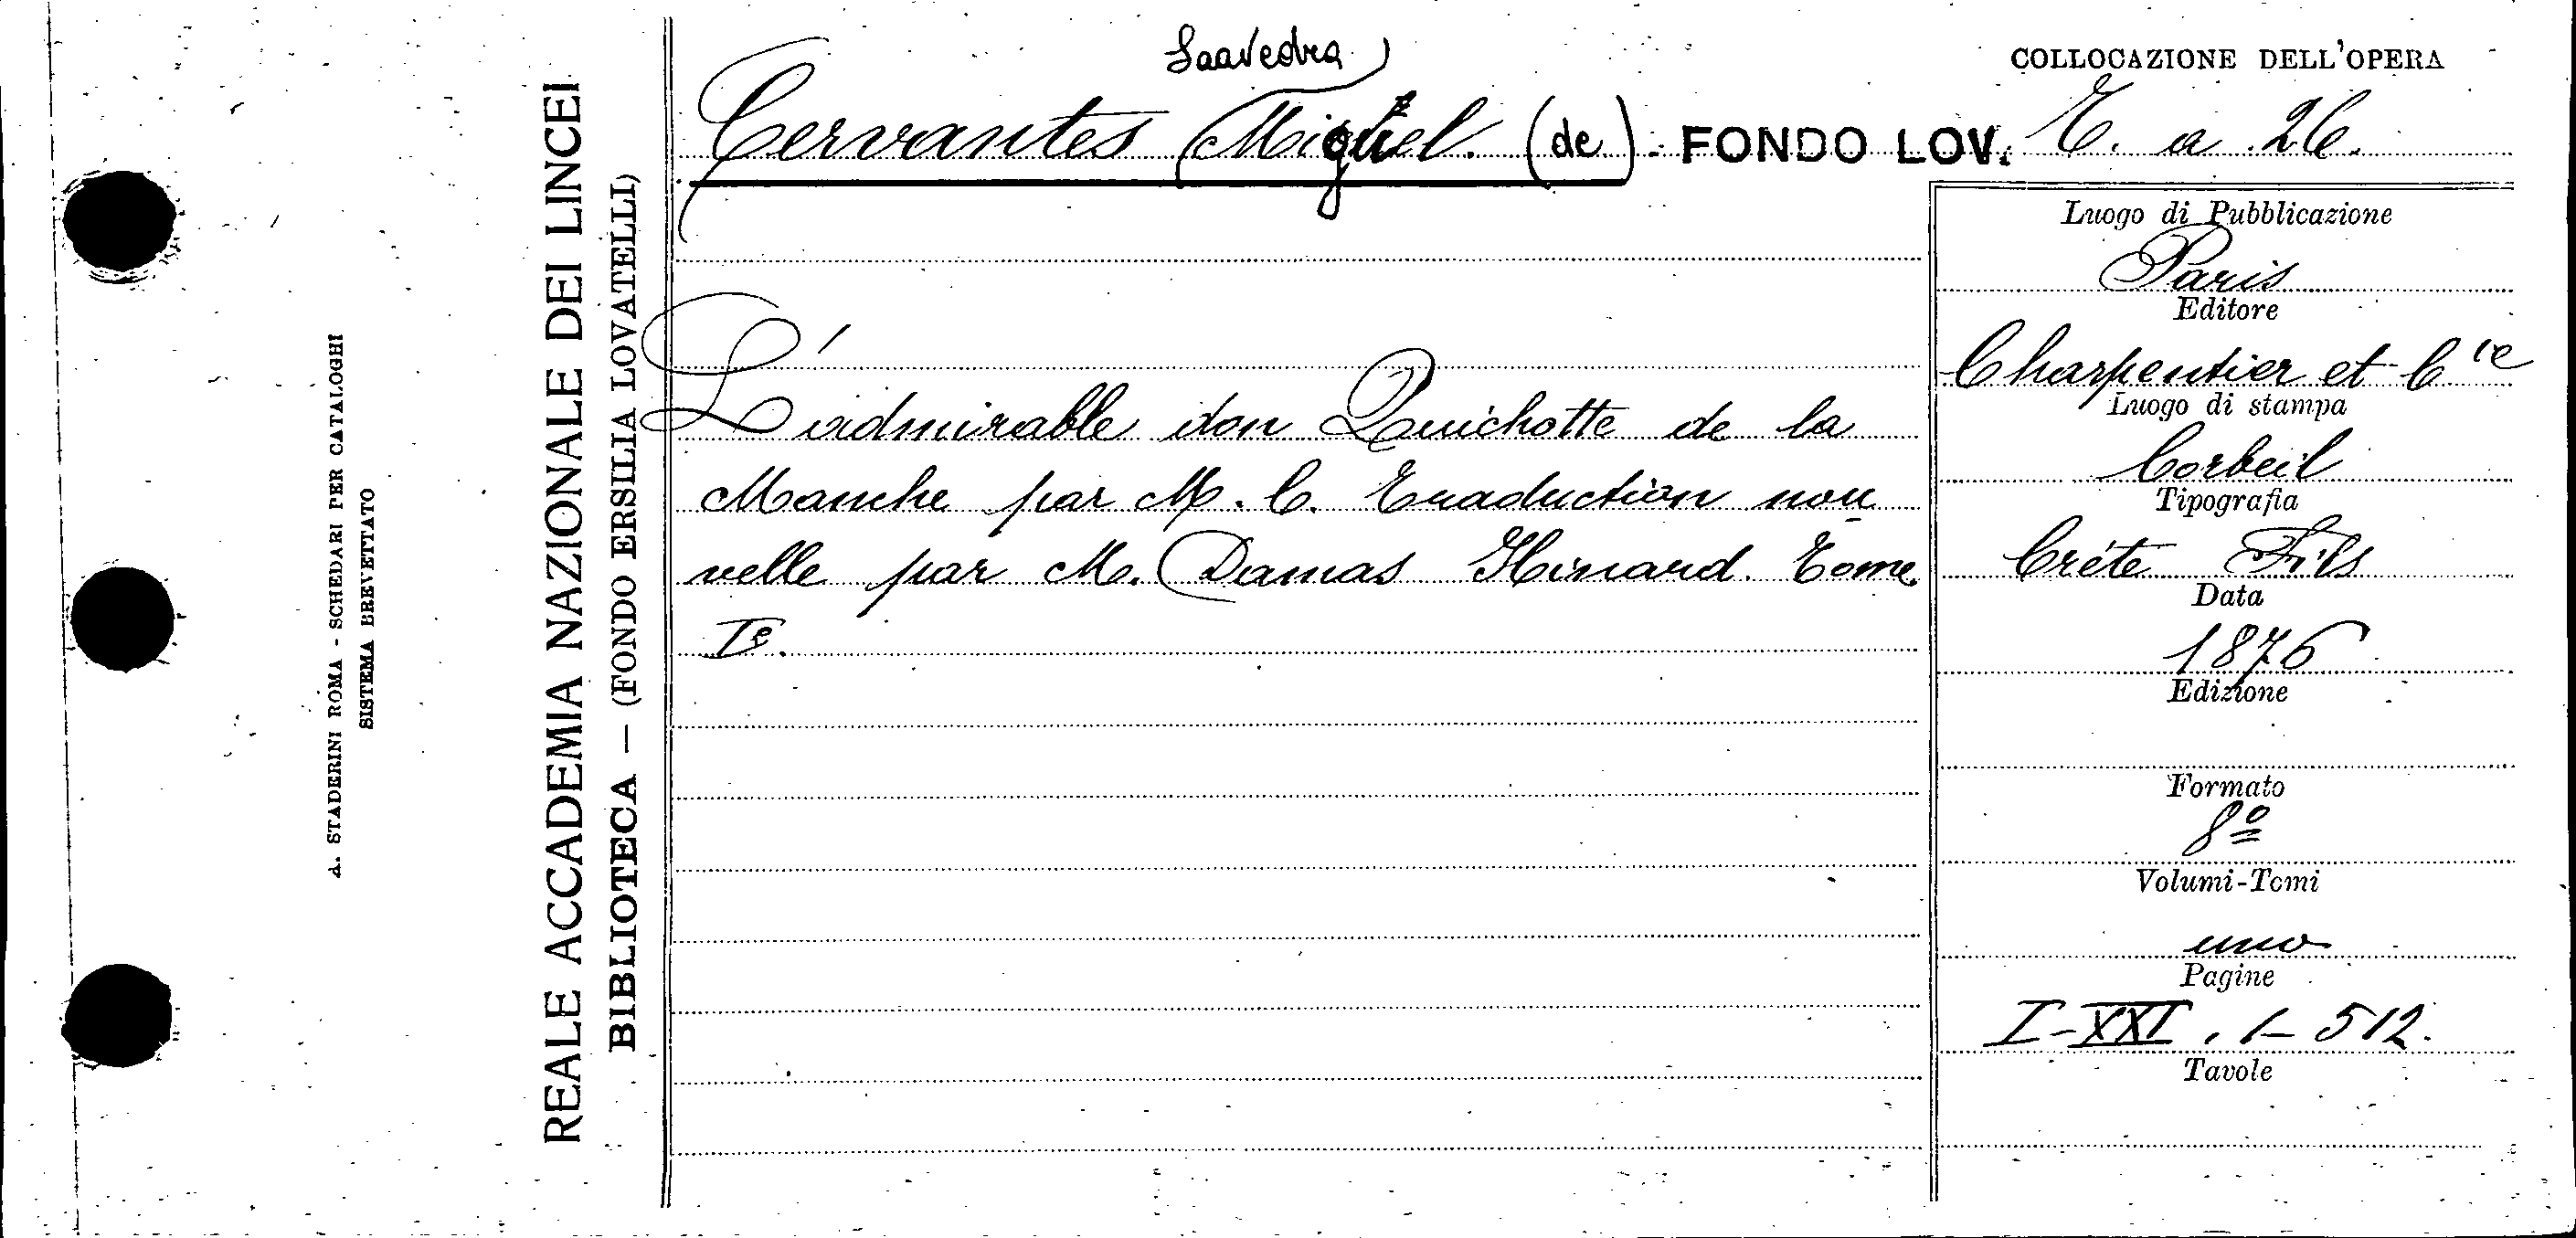 A. STADERINI ROMA - SCHEDARI PER CATALOGHI
SISTEMA BREVETTATO
REALE ACCADEMIA NAZIONALE DEI LINCEI
BIBLIOTECA — (FONDO ERSILIA LOVATELLI)
Saavedra
Cervantes (Miguel. (de). FONDO LOV.
L'admirable don Quichotte de la
Manche par M. C. Traduction nou
velle par M. Damas Hinard. Tome
Ie.
COLLOCAZIONE DELL'OPERA
T. a 26.
Luogo di Pubblicazione
Paris
Editore
Charpentier et Cie
Luogo di stampa
Corbeil
Tipografia
Créte Fils
Data
1876
Edizione
Formato
8º
Volumi-Tomi
uno
Pagine
I-XXI, 1-512.
Tavole